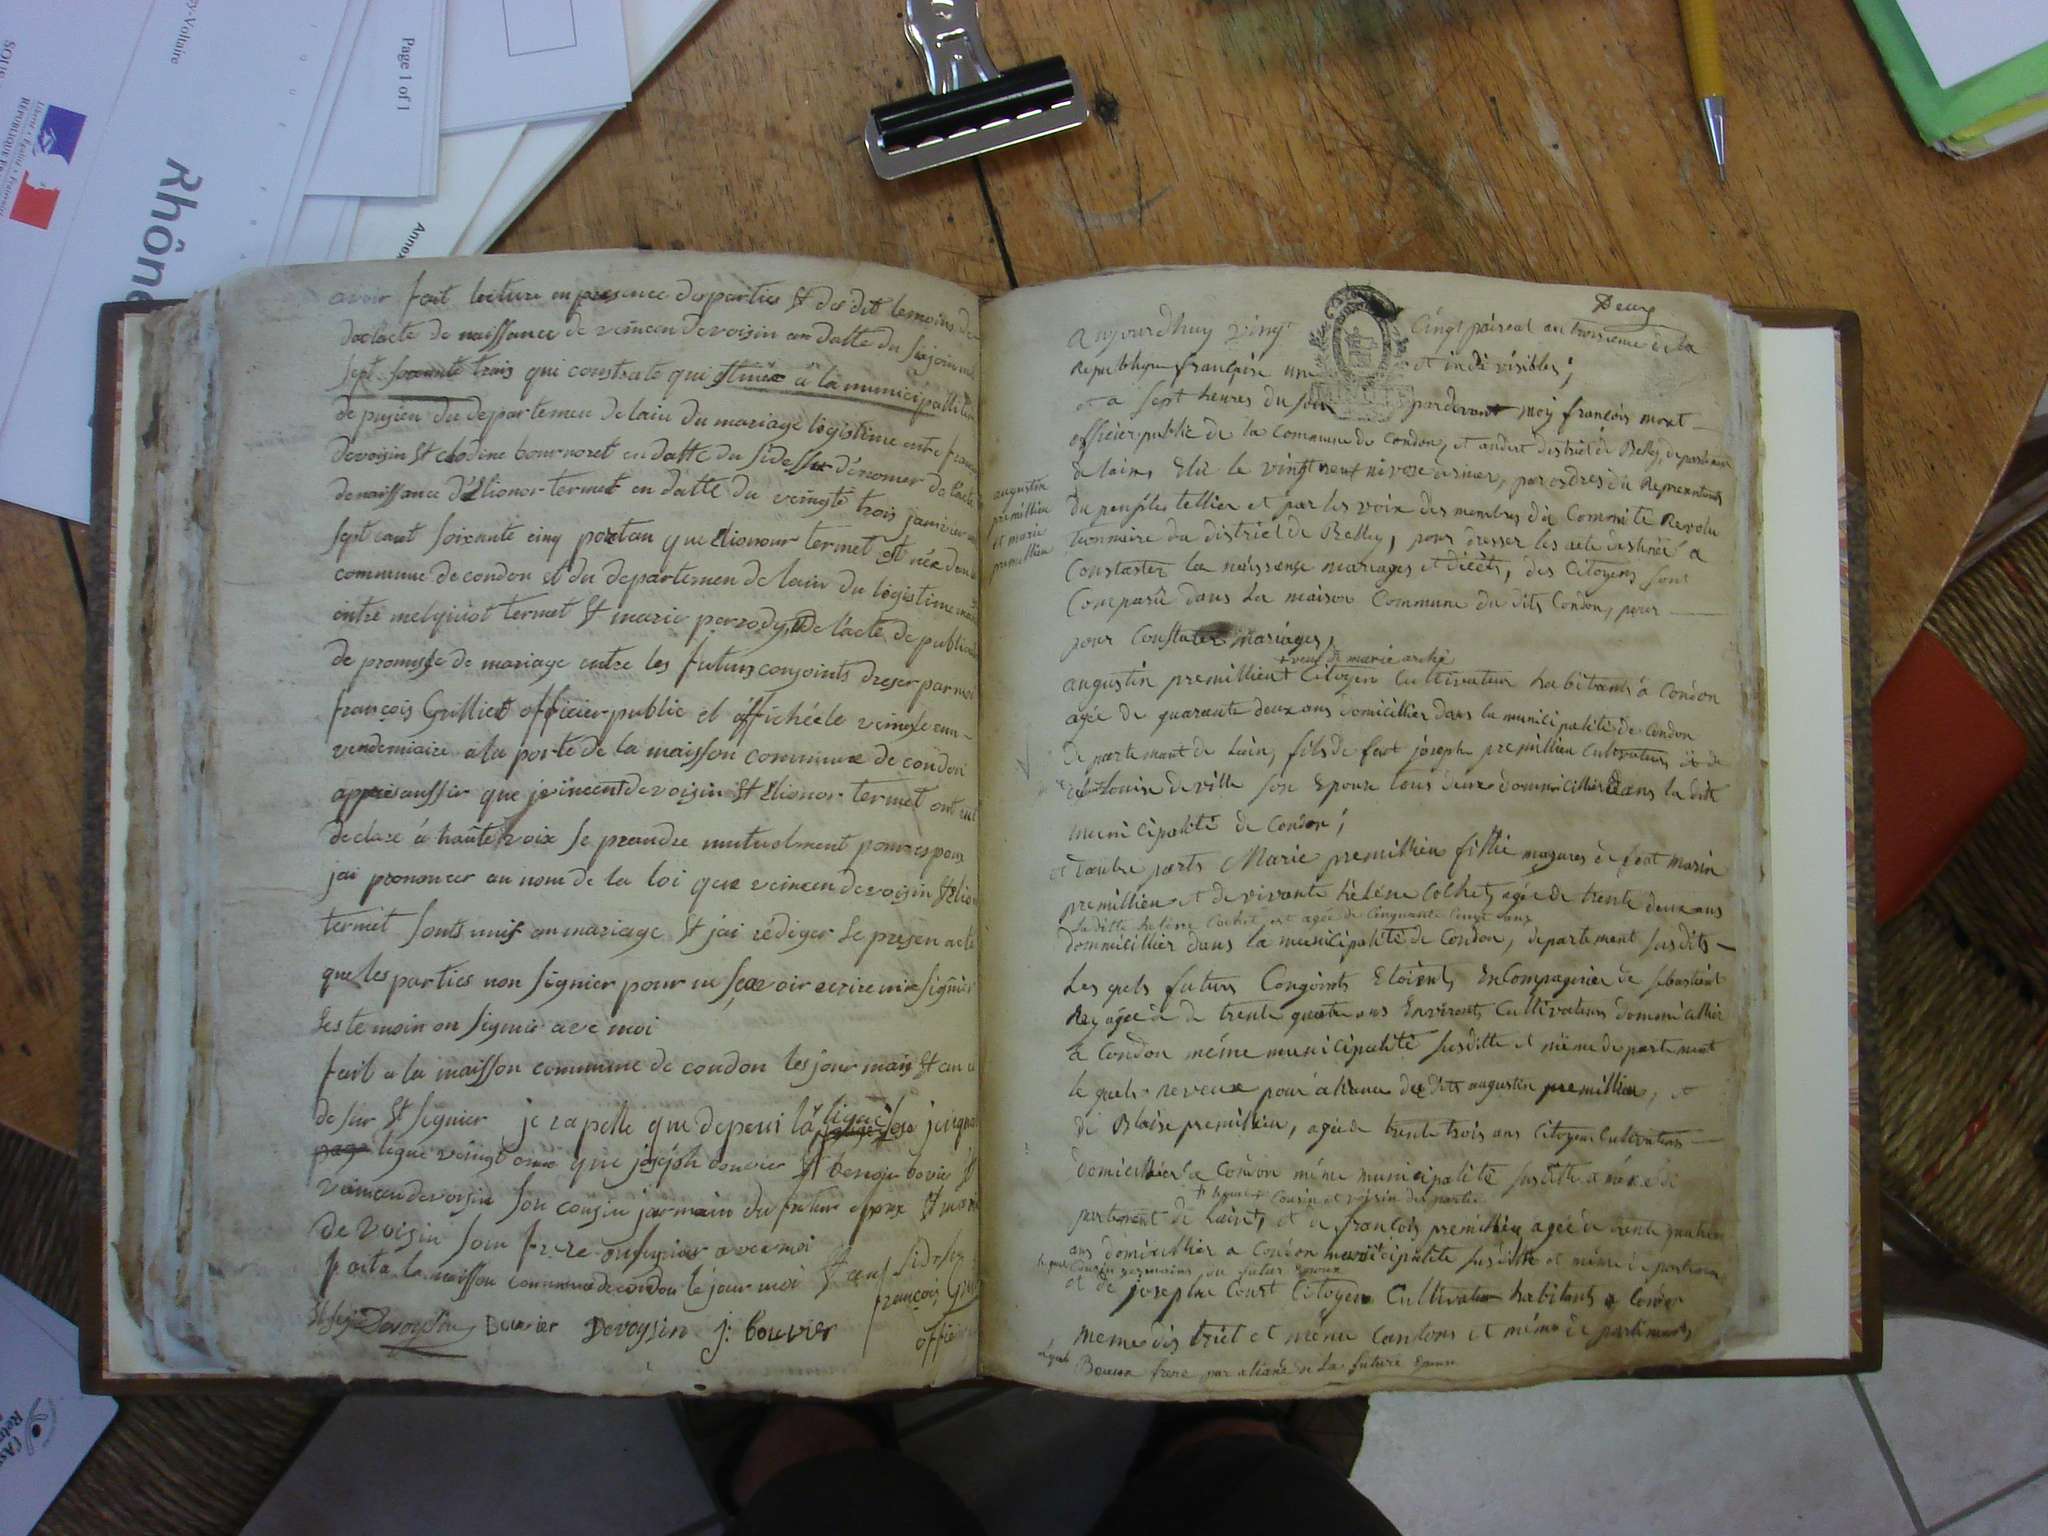 ey-Voltaire
Page 1 of 1
Liberté • Égalité • Fraternité
RÉPUBLIQUE F
Rhône
Annex
avoir fait lecture en presence des parties Et des dit temoins de
de lacte de naissance de veincen devoisin en datte du
sept soixante trois qui constrate qui Et née a la municipallite
de pujieu du departemen de lain du mariage legistime entre franc
devoisin Et clodine bournoret en datte du
de naissance d'Elionor termet en datte du veingte trois janvier
sept cent soixante cinq portan que Elionour termet est née dan
commune de condon et du departemen de lain du legistime
entre melquiot termet Et marie perrody, de lacte de public
de promesse de mariage entre les futurs conjoints dreser par moi
françois Grilliet officier public et affichée le veinste cun
vendemiaire a la porte de la maisson commune de condon
appres aussir que veincent devoisin Et Elionor termet ont
declare á haute voix se prandre mutuelment pour espoux
jai prononcer au nom de la loi que veincen devoisin Et Elion
termet sont unis en mariage Et jai rediger le presen acte
que les parties non signier pour ne scavoir ecrire
Les temoin on signier avec moi
fait a la maisson commune de condon les jour mois Et an
de sur Et signier je rapelle que depeui la ligne
page ligne veingt que joséph bouvier Et benoit bovie Et
veincen devoisin son cousin jarmain du futur epoux Et
de voisin son frere on signier avec moi
fait a la maisson commune de condon le jour moi Et an sidesu
françois Gril
Devoysin Bouvier Devoysin j: bouvier offici
Deux
aujourdhuy vingt Cinq paireal an troisieme de la
Republique françoise une et indivisibles;
et a sept heures du soir pardevant moy françois mont
officier public de la Commune de Condon, et andert district de Belley, departement
de lains Elu le vingt neuf nivose dernier, par ordres du Representants
du peuples tellier et par les voix des membres du Committe Revolu
tionnaire du district de Belley, pour dresser les acte destinée a
Constaster la naissense mariages et décèts, des Citoyens sont
Comparu dans la maison Commune du dits Condon, pour
pour Constater mariages,
augustin
premillieu
et marie
premillieu
+ veuf de marie
augustin premillieu + Citoyen Cultivateur habitants á Condon
agée de quarante deux ans domicillier dans la municipalité de Condon
departemant de Lain, fils de feut joseph premillieu Cultivateurs et de
Louise deville son Epouse tous deux dommicillier dans la ditte
municipalité de Condon;
et dautre parts Marie premillieu fillie majeures de feut Marin
premillieu et de vivante hélène Cochet, agée de trente deux ans
la ditte helène Cochet, est agée de Cinquante Cinqs ans
dommicillier dans la municipalité de Condon, departement susdits
Les quels futurs Conjoints Etoient, En Compagnier de sebastient
Rey agée de trente quatre ans Environts Cultivateurs dommicillier
a Condon même municipalité susditte et même departement
le quels neveux pour alience du dits augustin premillieu, et
de Blaise premillieu, agée de trente trois ans Citoyen Cultivateurs
domicillier a Condon même municipalité susditte et même de
le quel + Cousin et voisin des partie
partement de Laint, et de françois premillieu agée de trente quatre
ans domicillier a Condon municipalite susditte et même departement
le quel Cousin germains du futur Epoux
et de josephe Court Citoyen Cultivateur habitants a Condon
meme district et même Cantons et même departements
le quel Beaux frere par aliance de la future Epouse